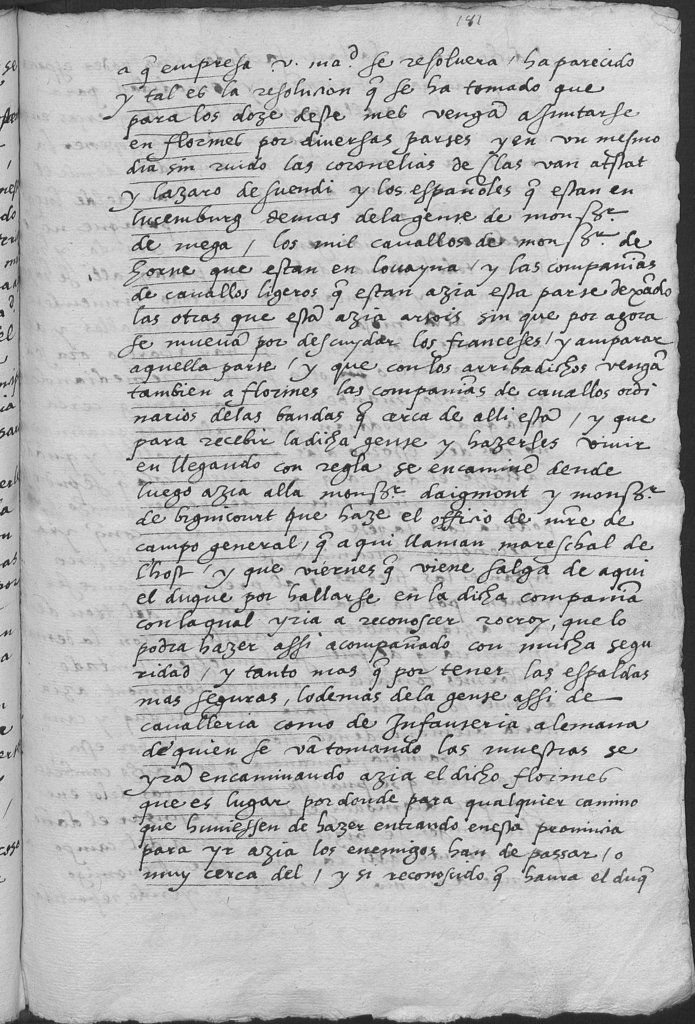 181
a q̃ empresa v. mad se resoluera / ha parecido
y tal es la resolucion q̃ se ha tomado que
para los doze deste mes vengã a juntarse
en florines por diuersas partes y en vn mesmo
dia sin ruido las coronelias de
y lazaro de suendi y los españoles q̃ estan en
lucemburg demas dela gente de monsor
de mega / los mil cauallos de monsor de
horne que estan en louayna / y las compañias
de cauallos ligeros q̃ estan azia esta parte dexãdo
las otras que estã azia artois sin que por agora
se mueuan por descuydar los franceses / y amparar
aquella parte / y que con los arribadichos vengã
tambien a florines las compañias de cauallos ordi
narios delas bandas q̃ cerca de alli estã / y que
para recebir la dicha gente y hazerles viuir
en llegando con regla se encaminẽ dende
luego azia alla monsor daigmont y monsor
de bignicourt que haze el officio de mre de
campo general / q̃ aqui llaman mareschal de
lhost / y que viernes q̃ viene salga de aqui
el duque por hallarse en la dicha compañia
con la qual yria a reconoscer rocroy, que lo
podra hazer assi acompañado con mucha segu
ridad / y tanto mas q̃ por tener las espaldas
mas seguras, lo demas dela gente assi de
caualleria como de Infanteria alemana
de quien se vã tomando las muestras se
yrã encaminando azia el dicho florines
que es lugar por donde para qualquier camino
que huuiessen de hazer entrando en esta prouincia
para yr azia los enemigos han de passar / o
muy cerca del / y si reconoscido q̃ haura el duq̃